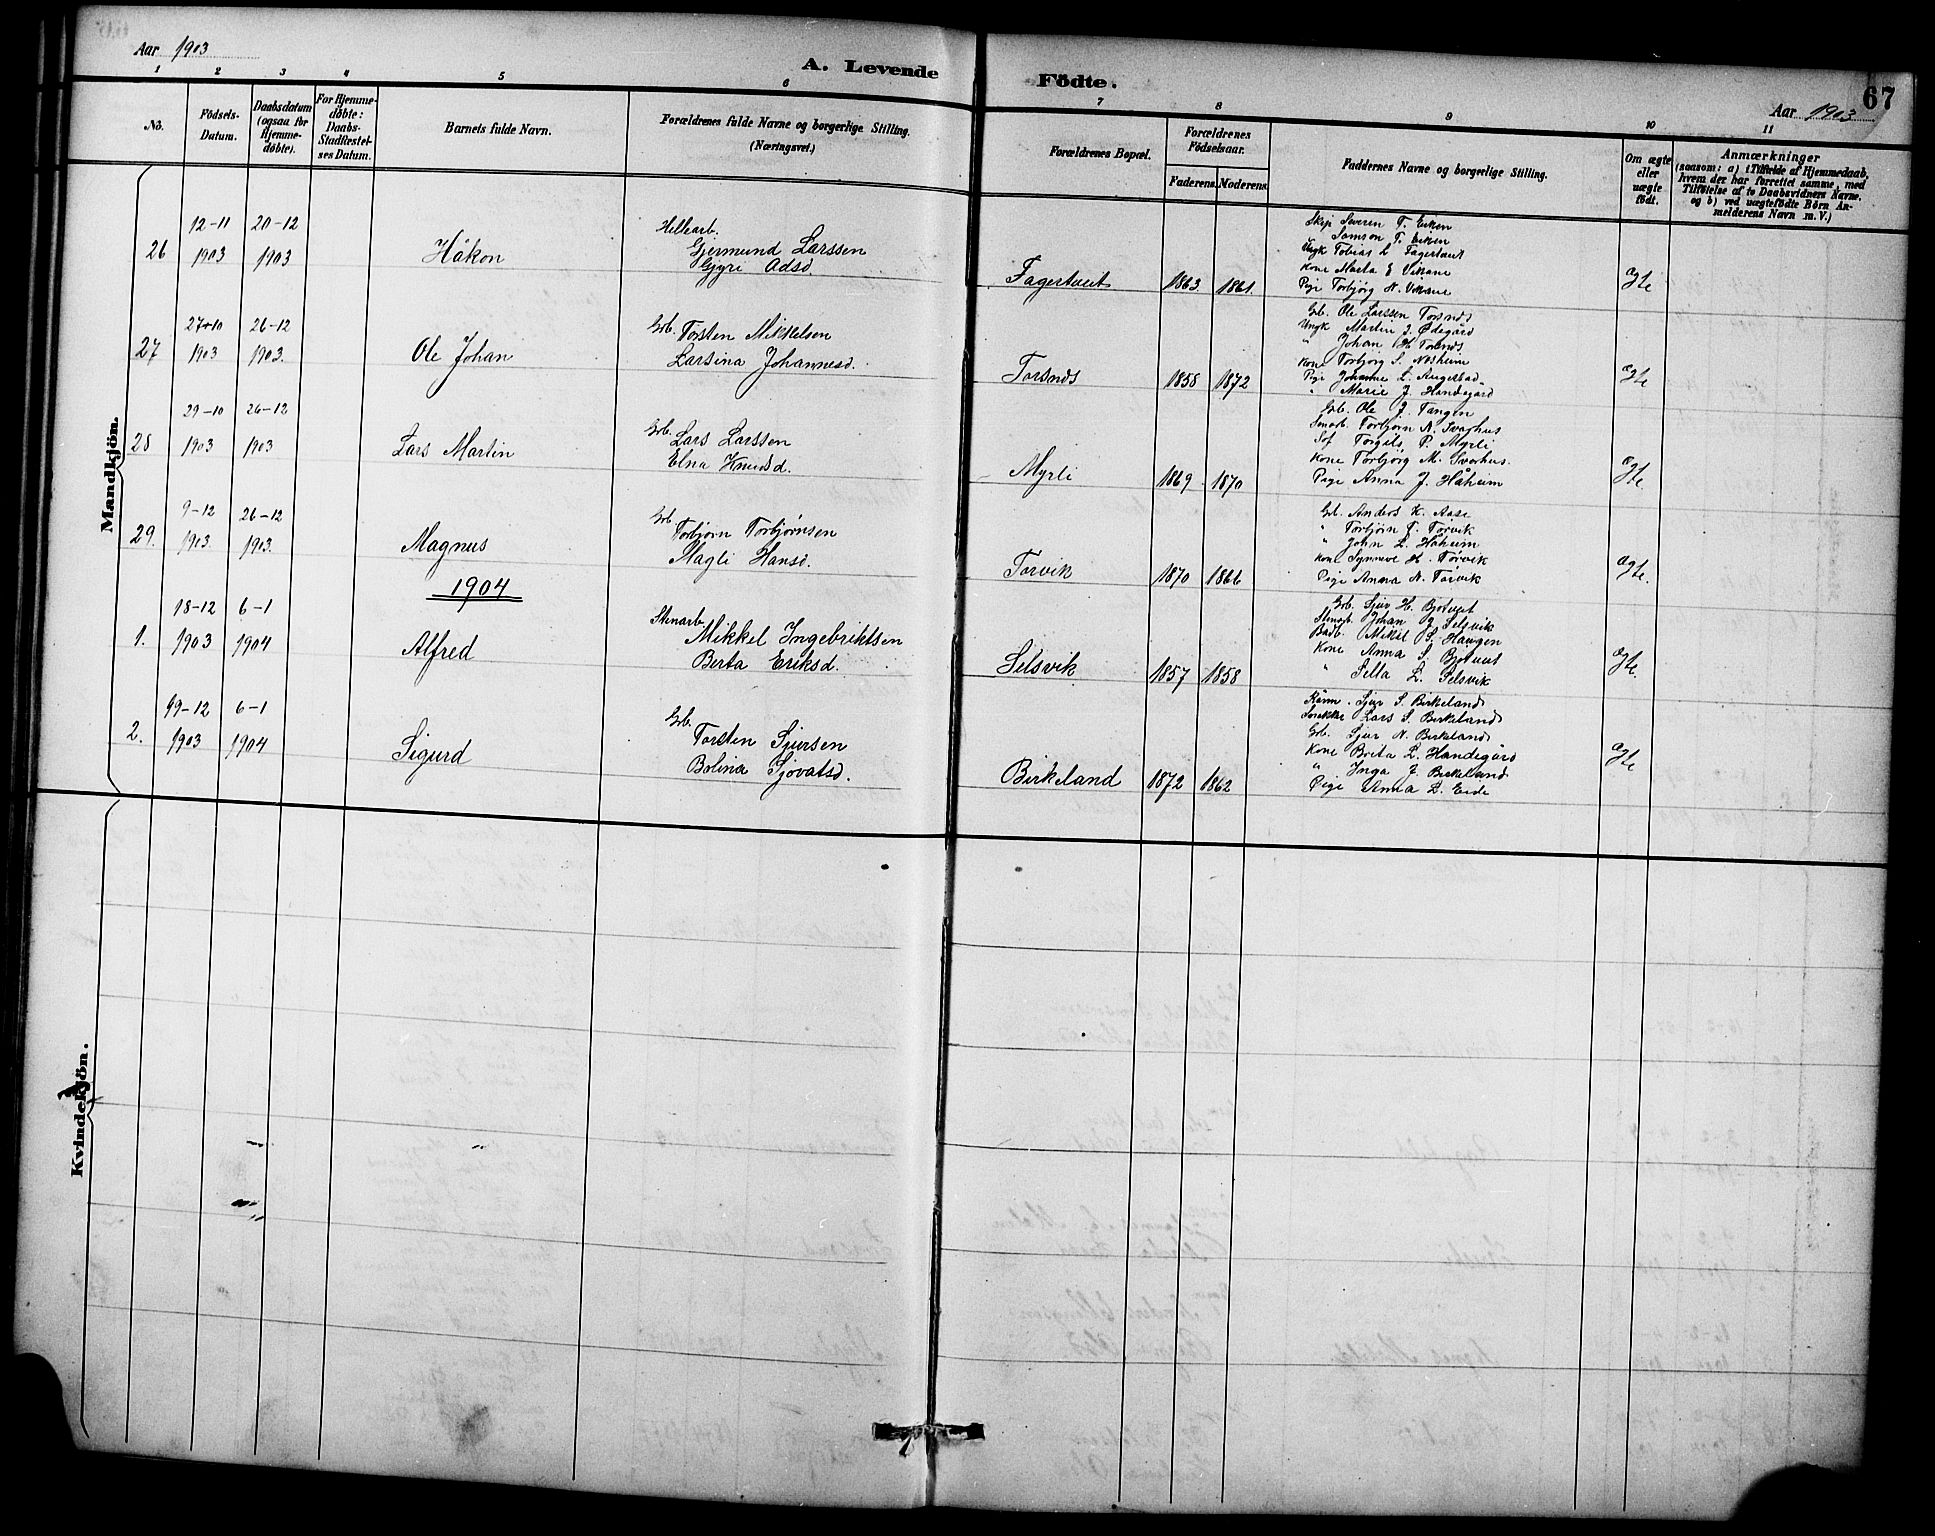 Aar 1903
A. Levende Födte.
Aar 1903
67
1 2 3 4 5 6 7 8 9 10 11
No.
Födsels-Datum.
Daabsdatum (ogsaa for Hjemme-døbte).
For Hjemme-døbte: Daabs-Stadfæstel-ses Datum.
Barnets fulde Navn.
Forældrenes fulde Navne og borgerlige Stilling. (Næringsvei.)
Forældrenes Bopæl.
Forældrenes Födselsaar.
Faderens. Moderens.
Faddernes Navne og borgerlige Stilling.
Om ægte eller uægte födt.
Anmærkninger
(saasom: a) i Tilfælde af Hjemmedaab,
hvem der har forrettet samme, med
Tilföielse af to Daabsvidners Navne.
og b) ved uægtefödte Börn An-
melderens Navn m. V.)
Mandkjön.
26
12-11 1903
20-12 1903
Håkon
Hellearb.
Gjermund Larssen
Gjyri Adsd.
Fagertveit
1863. 1861.
Skip Severen T. Eiken
Samson T. Eiken
Ungk Tobias L Fagertveit
Kone Marta E Vikane
Pige Torbjørg N. Vikane
Ægte
27
27-10 1903
26-12 1903.
Ole Johan
Grb. Torsten Mikkelsen
Larsina Johannesd.
Torsnes
1858 1872
Grb. Ole Larssen Torsnes
Ungk Martin J. Ødegård
" Johan H Torsnes
Kone Torbjørg S. Nesheim
Pige Johanne L.
" Marie J. Handegård
Ægte
28
29-10 1903
26-12 1903
Lars Martin
Grb. Lars Larssen
Elna Knutsd.
Myrli
1869 1870
Grb. Ole J. Tangen
Smarb. Torbjørn N. Svarhus
Torgils P. Myrli
Kone Torbjørg M. Svarhus.
Pige Anna J. Håheim
Ægte.
29.
9-12 1903.
26-12 1903.
Magnus
Grb. Torbjørn Torbjørnsen
Magli Hansd.
Torvik
1870 1866
Grb. Anders K. Aase
" Torbjørn T. Torvik
" John L. Håheim
Kone Synneve H. Torvik
Pige Anna N. Torvik
Ægte.
1904
1.
18-12 1903
6-1 1904
Alfred
Stenarb.
Mikkel Ingebriktsen
Berta Eriksd.
Selsvik
1857 1858
Grb. Sjur H. Bjotveit
Stenarb. Johan J Selsvik
Mikal S. Haugen
Kone Anna S. Bjotveit
" Sella L. Selsvik
Ægte.
2.
19-12 1903
6-1 1904
Sigurd
Grb. Torsten Sjursen
Bolina Sjovatsd.
Birkeland
1872 1862
Kårm. Sjur S. Birkeland
Snekker Lars S. Birkeland
Grb. Sjur N. Birkeland
Kone Brita L. Handegård
" Inga J. Birkeland
Pige Anna L. Eide
Ægte
Kvindekjön.